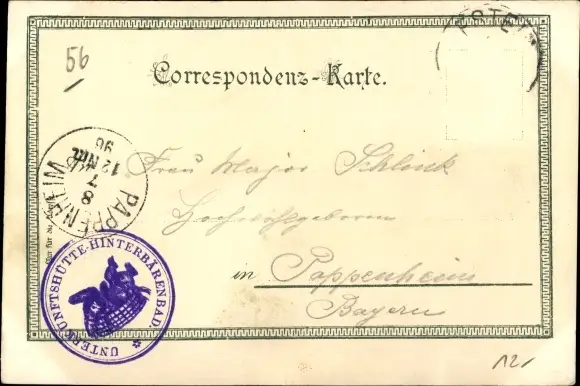 56
Correspondenz-Karte.
PAPPENHEIM
8
7
12 Nm.
96
Frau Major Schlink
Hochwohlgeboren
in Pappenheim
Bayern
Nur für die
UNTERKUNFTSHÜTTE-HINTERBÄRENBAD.
12